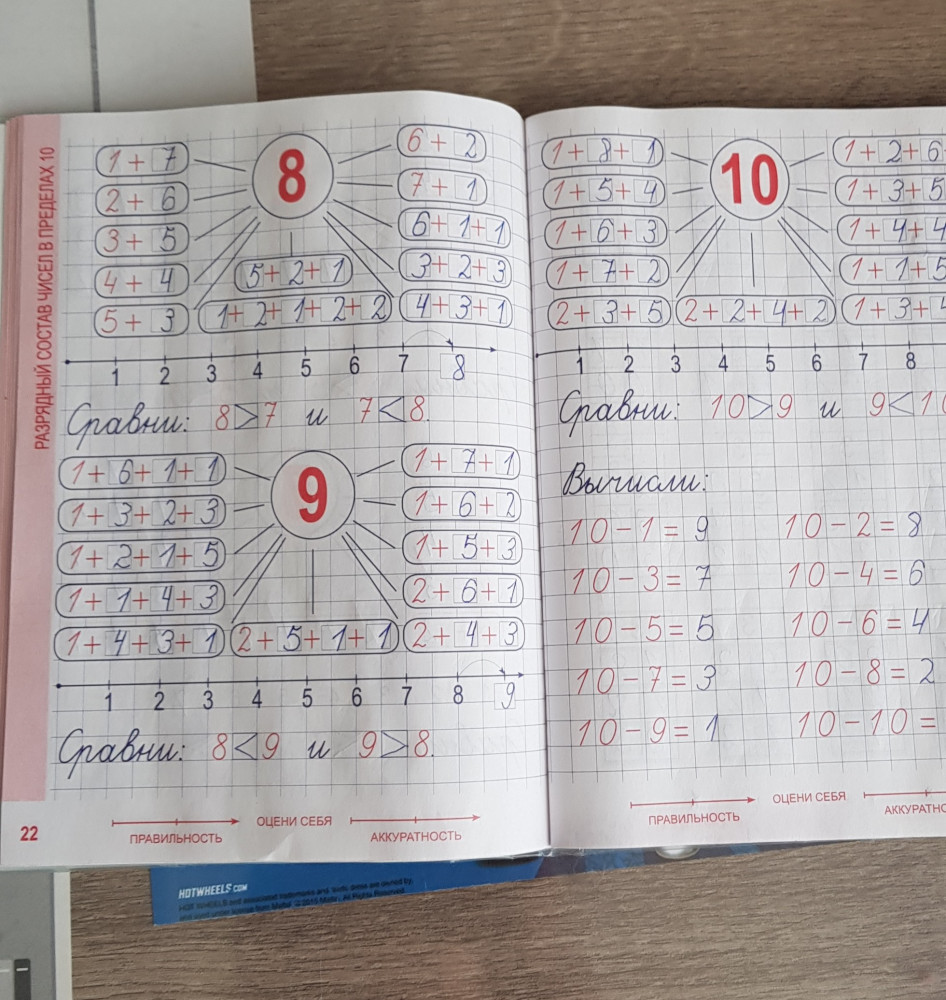 РАЗРЯДНЫЙ СОСТАВ ЧИСЕЛ В ПРЕДЕЛАХ 10
8
1+7
2+6
3+5
4+4
5+3
5+2+1
1+2+1+2+2
6+2
7+1
6+1+1
3+2+3
4+3+1
1 2 3 4 5 6 7 8
Сравни: 8>7 и 7<8.
9
1+6+1+1
1+3+2+3
1+2+1+5
1+1+4+3
1+4+3+1
2+5+1+1
1+7+1
1+6+2
1+5+3
2+6+1
2+4+3
1 2 3 4 5 6 7 8 9
Сравни: 8<9 и 9>8.
22
ПРАВИЛЬНОСТЬ
ОЦЕНИ СЕБЯ
АККУРАТНОСТЬ
10
1+8+1
1+5+4
1+6+3
1+7+2
2+3+5
2+2+4+2
1+2+6
1+3+5
1+4+4
1+1+5
1+3+
1 2 3 4 5 6 7 8
Сравни: 10>9 и 9<10
Вычисли:
10-1=9 10-2=8
10-3=7 10-4=6
10-5=5 10-6=4
10-7=3 10-8=2
10-9=1 10-10=
ПРАВИЛЬНОСТЬ
ОЦЕНИ СЕБЯ
АККУРАТНО
HOTWHEELS.COM
HOT WHEELS and associated trademarks and trade dress are owned by,
and used under license from, Mattel. © 2015 Mattel. All Rights Reserved.